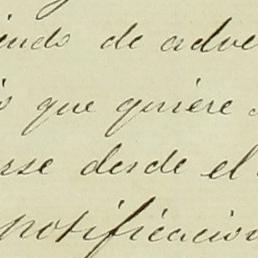 iendo de adve
que quiere
rse desde el
notificacion